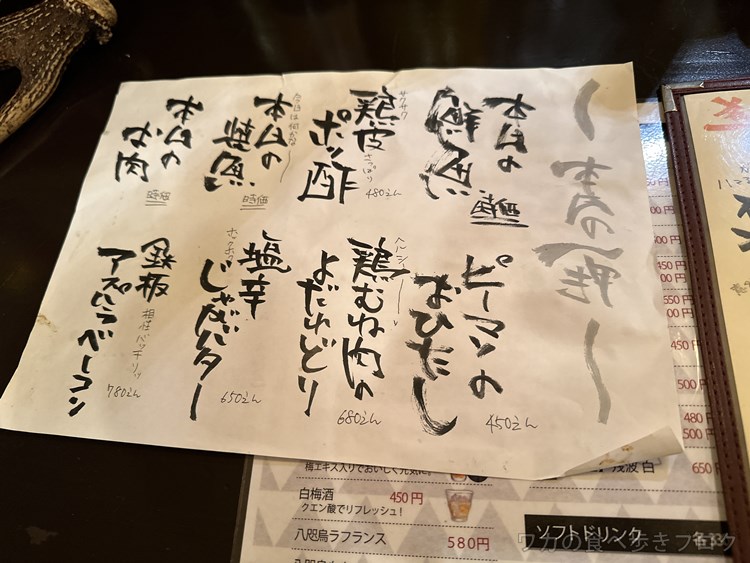 〜本日の一唯〜
本日の
鮮魚
時価
サクサク
鶏皮
さっぱり
ポン酢
480えん
今日は何かな〜
本日の
焼魚
時価
本日の
お肉
時価
ピーマンの
おひたし
450えん
ヘルシー
鶏むね肉の
よだれどり
680えん
塩辛
ホックホク
じゃがバター
650えん
鉄板
相性バッチリッ
アスパラベーコン
780えん
梅エキス入りでおいしく元気に。
白梅酒
450円
クエン酸でリフレッシュ！
八咫烏ラフランス
580円
450円
500円
480円
500円
浅波 白
650円
ソフトドリンク
ワカの食べ歩きブログ